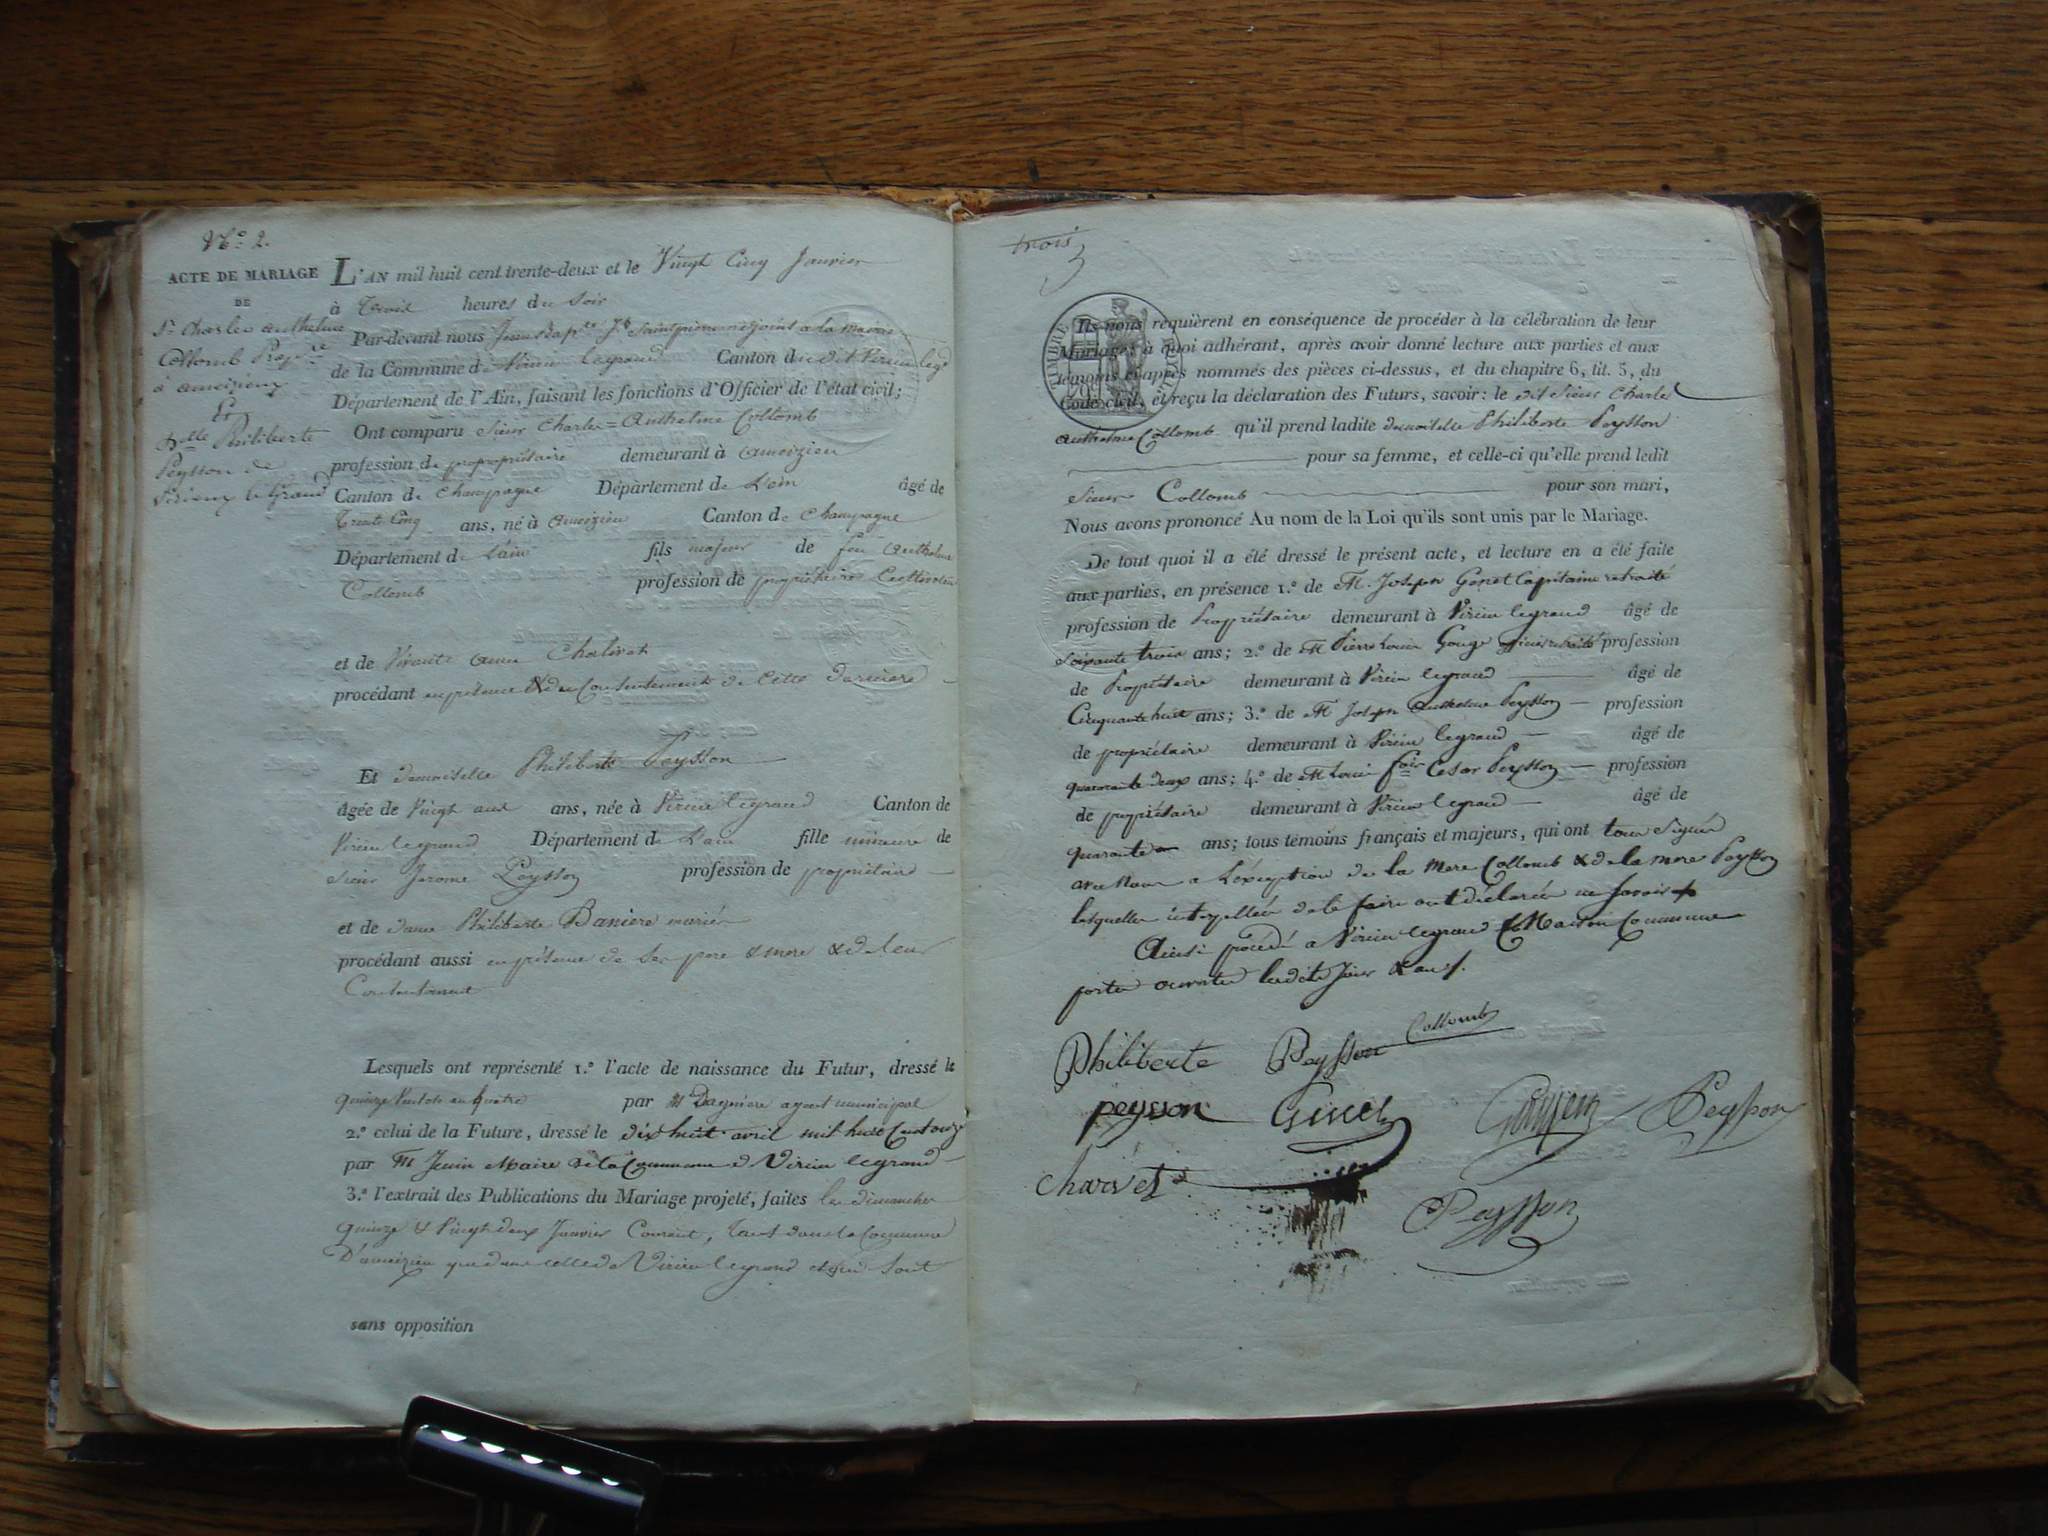 N.o 2.
ACTE DE MARIAGE
DE
Sr Charles anthelme
Collomb Propre
a ameizieux
Et
Dlle Philiberte
Peysson de
Virieux le Grand
L'AN mil huit cent trente-deux et le Vingt Cinq Janvier
à Trois heures du Soir
Par-devant nous Jean Bapte adjoint a la mairie
de la Commune de Virieu legrand Canton du dit Virieu legd
Département de l'Ain, faisant les fonctions d'Officier de l'état civil;
Ont comparu Sieur Charles=Anthelme Collomb
profession de propropriétaire demeurant à ameizieu
Canton de Champagne Département de L'ain âgé de
Trente Cinq ans, né à ameizieu Canton de Champagne
Département de L'ain fils majeur de feu Anthelme
Collomb profession de propriétaire Cultivateur
et de Vivante
procédant en présence & du Consentement de Cette dernière
Et demoiselle Philiberte Peysson
âgée de Vingt ans ans, née à Virieu legrand Canton de
Virieu legrand Département de L'ain fille mineure de
Sieur Jerome Peysson profession de propriétaire
et de dame Philiberte Baniere mariés
procédant aussi en présence de Ses pere & mere & de leur
Consentement
Lesquels ont représenté 1.º l'acte de naissance du Futur, dressé le
quinze Ventose an quatre par M Dagniere agent municipal
2.º celui de la Future, dressé le dix huit avril mil huit Cent onze
par M Juvin Maire de la Commune de Virieu legrand
3.º l'extrait des Publications du Mariage projeté, faites les dimanches
quinze & Vingt deux Janvier Courant, tant dans la Commune
D'ameizieu que dans celle de Virieu legrand et qui Sont
sans opposition
trois
TIMBRE ROYAL
Ils nous requièrent en conséquence de procéder à la célébration de leur
Mariage; à quoi adhérant, après avoir donné lecture aux parties et aux
témoins ci-après nommés des pièces ci-dessus, et du chapitre 6, tit. 5, du
Code civil, et reçu la déclaration des Futurs, savoir: le dit Sieur Charle
anthelme Collomb qu'il prend ladite demoiselle Philiberte Peysson
pour sa femme, et celle-ci qu'elle prend ledit
Sieur Collomb pour son mari,
Nous avons prononcé Au nom de la Loi qu'ils sont unis par le Mariage.
De tout quoi il a été dressé le présent acte, et lecture en a été faite
aux parties, en présence 1.º de M. Joseph Ginet Capitaine retraité
profession de Propriétaire demeurant à Virieu legrand âgé de
soixante trois ans; 2.º de M Pierre Louis Gouge profession
de Propriétaire demeurant à Virieu legrand âgé de
Cinquante huit ans; 3.º de M Joseph Anthelme Peysson profession
de propriétaire demeurant à Virieu legrand âgé de
quarante deux ans; 4.º de M Louis fois Cesar Peysson profession
de propriétaire demeurant à Virieu legrand âgé de
quarante ans; tous témoins français et majeurs, qui ont tous Signés
avec Nous a L'exception de la Mere Collomb & de la mere Peysson
lesquelles interpellées de le faire ont déclarées ne Savoir
Ainsi procédé a Virieu legrand Maison Commune
portes ouvertes lesdits Jour & an
Philiberte Peysson Collomb
peysson Ginet Peysson
Charvet
Peysson